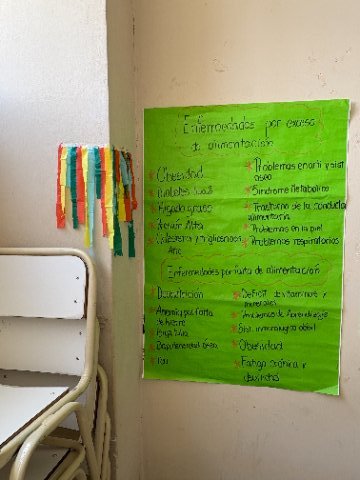 Enfermedades por exceso
de alimentación
Obesidad
Diabetes
Hígado graso
Colesterol y trigliceridos
Problemas en
Sindrome Metabolico
Trastorno de la conducta
alimentaria
Problemas en la piel
Problemas respiratorios
Enfermedades por falta de alimentación
Desnutrición
Anemia por falta
de hierro
Deficit de vitaminas y
minerales
Problemas de Aprendizajes
Sist. inmunologico débil
Obesidad
Fatiga crónica y